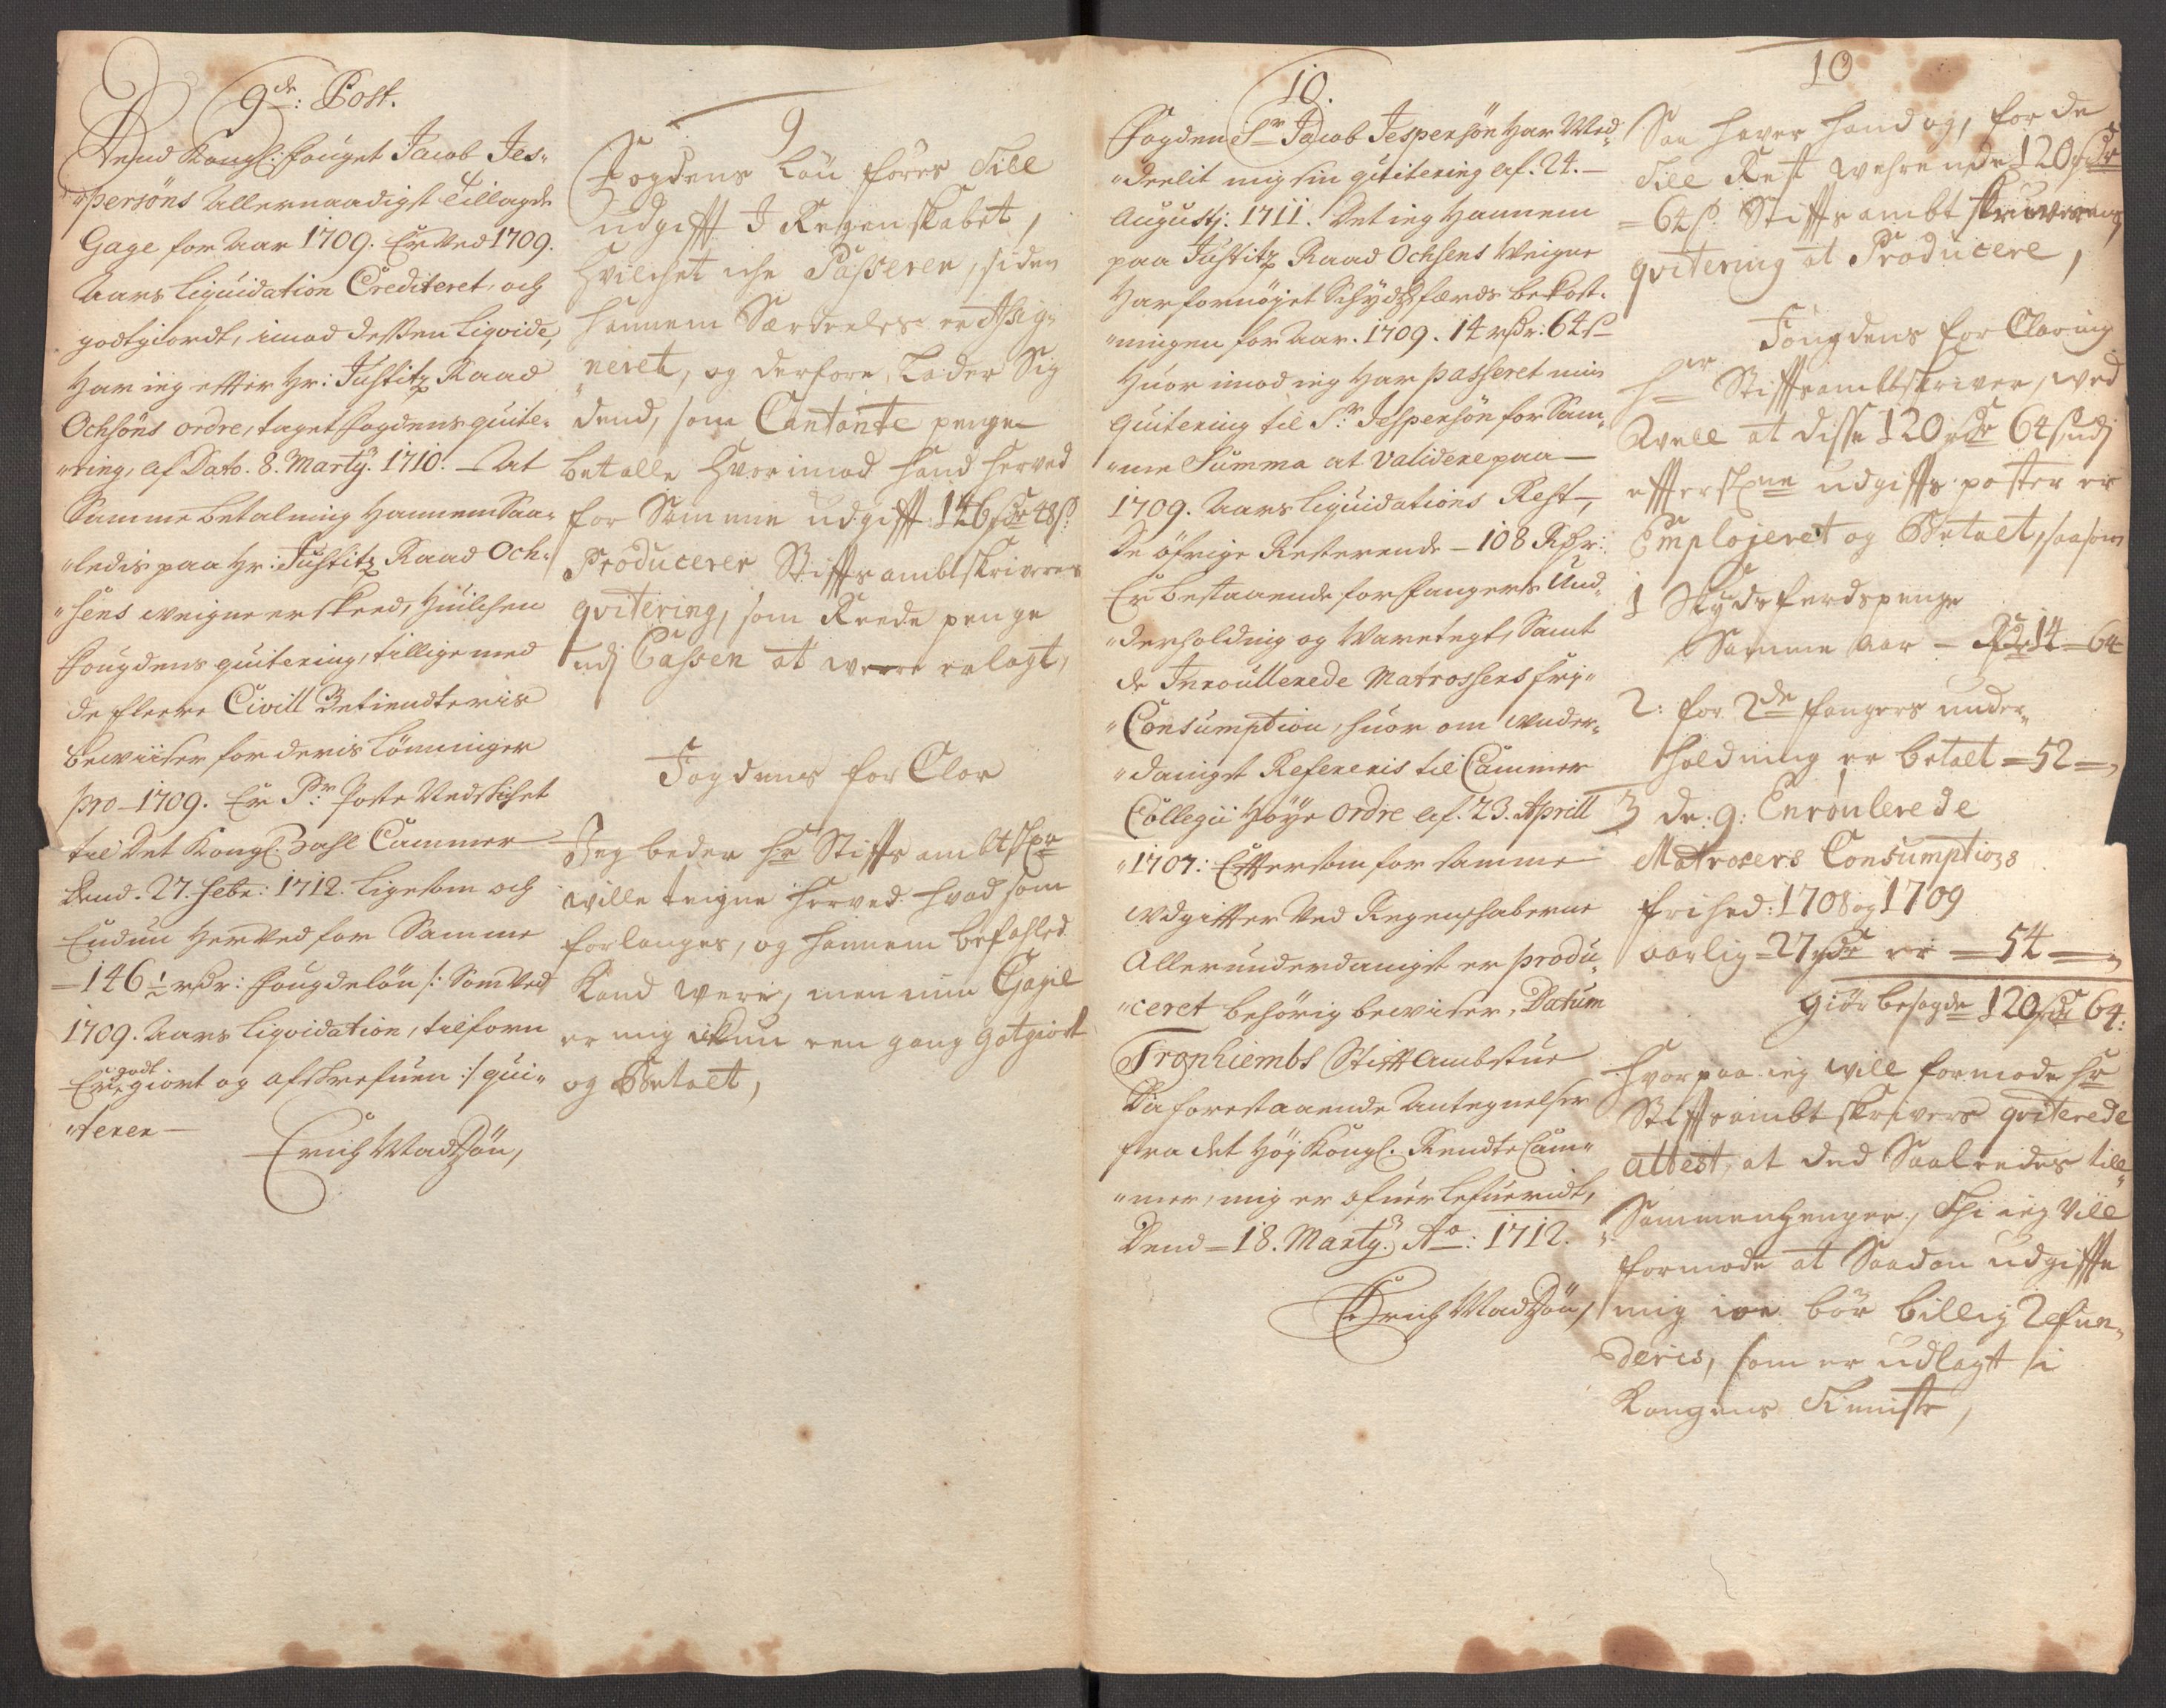 9de: Post.
Dend Kongl: fouget Jacob Jes-
persöns Allernaadigst Tillagde
Gage for Aar 1709. Er Ved 1709.
Aars Liquidation Crediteret, och
godtgiordt, imod dessen Liqvide,
Har ieg efter Hr: Justitz Raad
Ochsöns ordre, taget fogdens quite-
ring, af Dato. 8. Marty. 1710. At
Samme betalning Hannem Saa-
ledis paa Hr: Justitz Raad Och-
sens weigne er skeed, Huilchen
fougdens quitering, tillige med
de fleere Civill Betiendteris
bewiiser for deris Lönninger
pro 1709. Er Pr Poste Nedskichet
til Det Kongl. Zahl Cammer
dend. 27. Febr: 1712. ligesom och
Endnu HerVed for Samme
146 1/2 rdr: fougdelön /: Som Ved
1709. Aars Liqvidation, tilforn
Er godtgiort og afskrefuen :/ qui-
terer
Erich Madtzön,
9
Fogdens Lön föres Till
udgifft I Regenskabet,
hvilchet iche Passerer, siden
hannem Særdeeles er Assig-
neret, og derfore Lader Sig
dend, som Contante penge
betalle hvorimod hand herved
for Samme udgifft 146 rdr 48 s:
Producerer Stiffts ambtskriverens
qvitering, som Reede penge
udj Cassen at were erlagt,
Fogdens for Clar
Jeg beder hr Stiffts ambtskr
wille teigne herved hvad som
forlanges, og hannem befahled
Kand were, men min Gagie
er mig ikkun een gang gotgiort
og Betalt,
10.
Fogden Sr Jacob Jespersön Har Med-
deelit mig sin quitering af. 24.
Augustj: 1711. Det ieg Hannem
paa Justitz Raad Ochsens Weigne
Har fornöjet Schydtzfærds bekost-
ningen for Aar. 1709. 14 rdr: 64 s
Huor imod ieg Har passeret min
quitering til Sr: Jespersön for Sam-
me Summa at Validere paa
1709. Aars Liquidations Rest,
De öfrige Resterende 108 Rdr:
Er bestaaende for fangers Und-
derholdning og Varetegt, Samt
de Inroullerede Matrossers fri-
Consumption, huor om under-
danigst Refereris til Cammer
Collegii Höye Ordre af. 23. Aprill
1707: Efftersom for samme
udgiffter Ved Regenschaberne
Allerunderdanigst er produ-
ceret behörig bewiser, Datum
Tronhiembs Stifft Ambstue
Da forestaaende Antegnelser
fra det Höy Kongl. Rendte Cam-
mer, mig er ofuerlefueridt,
Dend 18. Marty. Ao: 1712.
Erich Madtzön,
10
Saa haver hand og, for de
Till Rest wehrende 120 rdr
64 s: Stiffts ambtskriverens
qvitering at Producere,
Fougdens for Claring
Hr Stiffts ambtskriver, wed
Well at disse 120 rdr 64 s udj
effterskrne udgiffts poster er
Emplojeret og Betalt, saasom
1 Skydsferdspenge
Samme Aar - Rdr 14 - 64
2: for 2de fangers under-
holdning er betalt - 52 -
3 de 9: Enroulerede
Matrosers Consumptions
frihed: 1708 og 1709
aarlig 27 rdr er - 54 -
Giör besagde 120 rdr 64:
hvorpaa ieg will formode hr
Stiffts ambtskrivers qviterede
attest, at ded Saaledes till-
Sammenhenger, Thi ieg Vill
formode at Saadan udgiffte
mig ioe bör billig Refun-
deris, som er udlagt i
Kongens Tieniste,